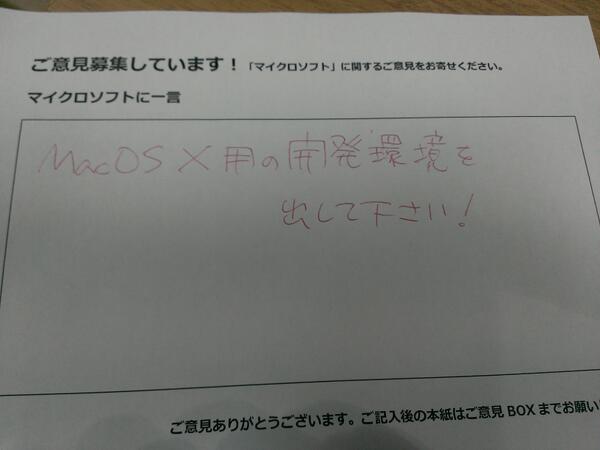 ご意見募集しています！「マイクロソフト」に関するご意見をお寄せください。
マイクロソフトに一言
MacOS X 用の開発環境を
出して下さい!
ご意見ありがとうございます。ご記入後の本紙はご意見 BOX までお願い